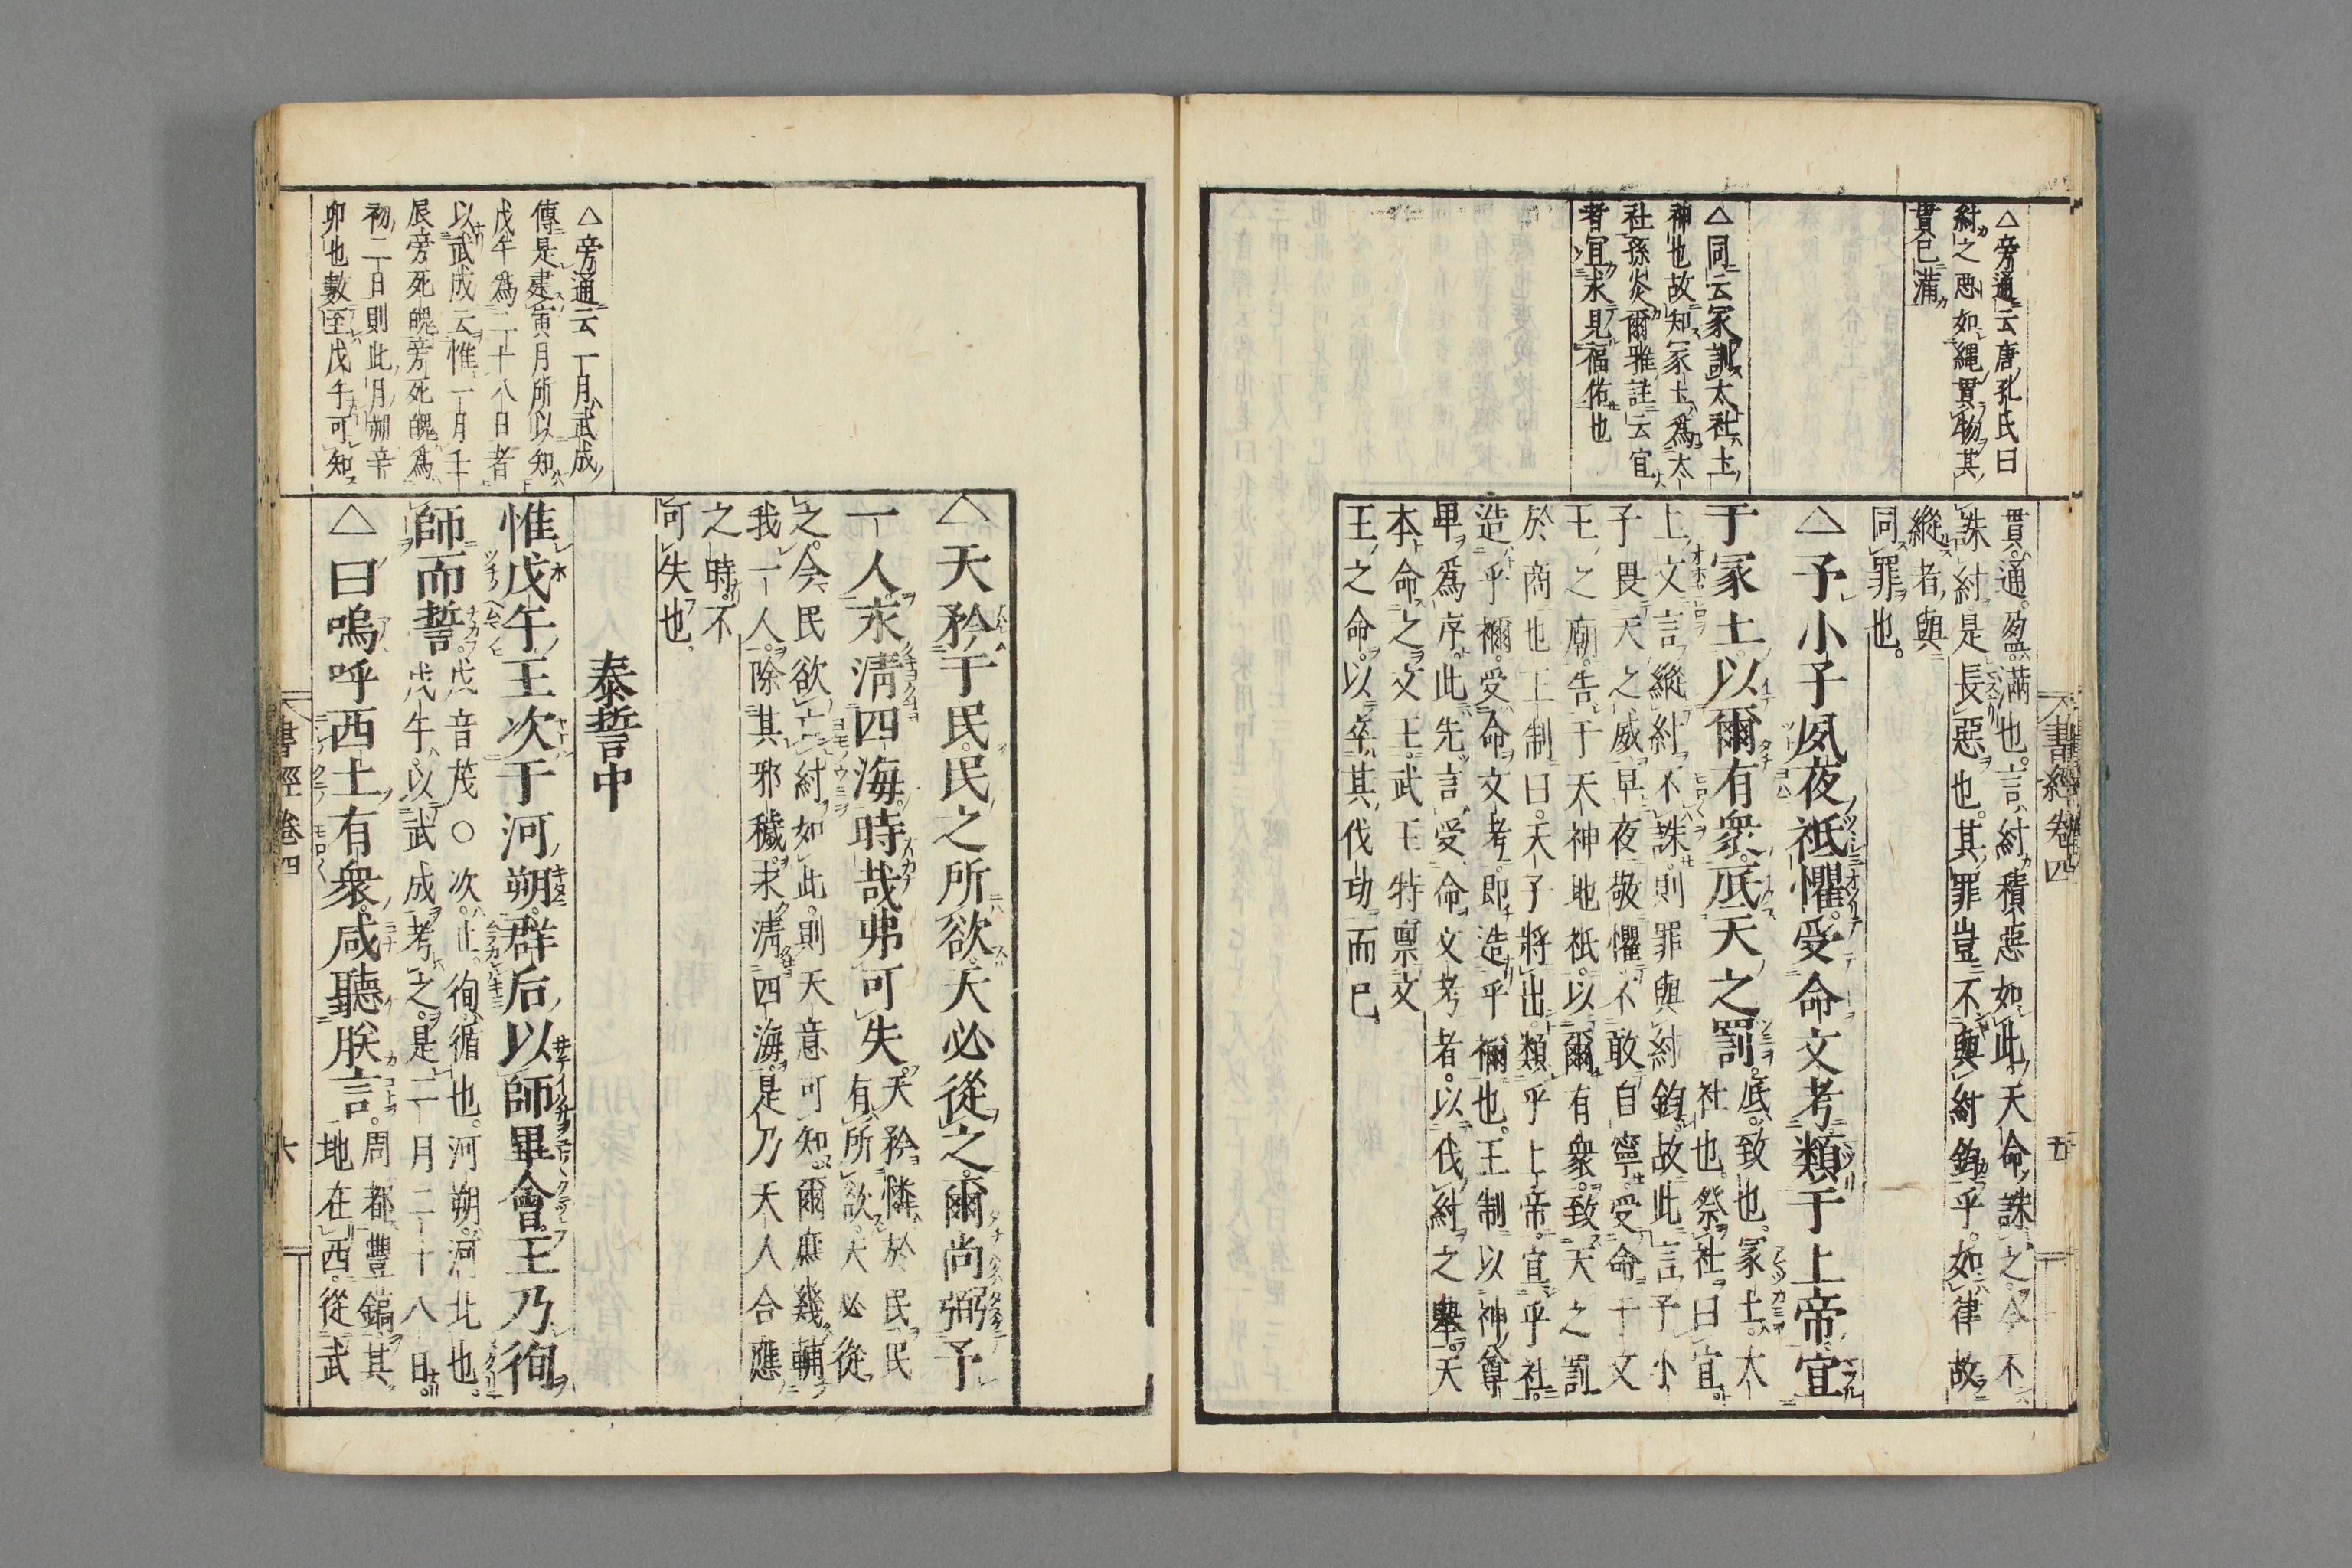 △旁通云唐孔氏曰
紂之惡如繩貫物其
貫已滿
△同云冢訓大社土
神也故知冢土爲大
社孫炎爾雅註云宜
者宜求見福佑也
書經卷四
五
貫通盈滿也言紂積惡如此天命誅之今不
誅紂是長惡也其罪豈不與紂鈞乎如律故
縱者與
同罪也
△予小子夙夜祗懼受命文考類于上帝宜
于冢土以爾有衆底天之罰底致也冢土大
社也祭社曰宜
上文言縱紂不誅則罪與紂鈞故此言予小
子畏天之威早夜敬懼不敢自寧受命于文
王之廟告于天神地祇以爾有衆致天之罰
於商也王制曰天子將出類乎上帝宜乎社
造乎禰受命文考即造乎禰也王制以神尊
卑爲序此先言受命文考者以伐紂之擧天
本命之文王武王特禀文
王之命以卒其伐功而已
△天矜于民民之所欲天必從之爾尚弼予
一人永淸四海時哉弗可失天矜憐於民民
有所欲天必從
之今民欲亡紂如此則天意可知爾庶幾輔
我一人除其邪穢永淸四海是乃天人合應
之時不
可失也
泰誓中
△旁通云一月武成
傳是建寅月所以知
戊午爲二十八日者
以武成云惟一月壬
辰旁死魄旁死魄爲
初二日則此月朔辛
卯也數至戊午可知
惟戊午王次于河朔群后以師畢會王乃徇
師而誓戊音茂○次止徇循也河朔河北也
戊午以武成考之是一月二十八日
△曰嗚呼西土有衆咸聽朕言周都豐鎬其
地在西從武
書經卷四
六